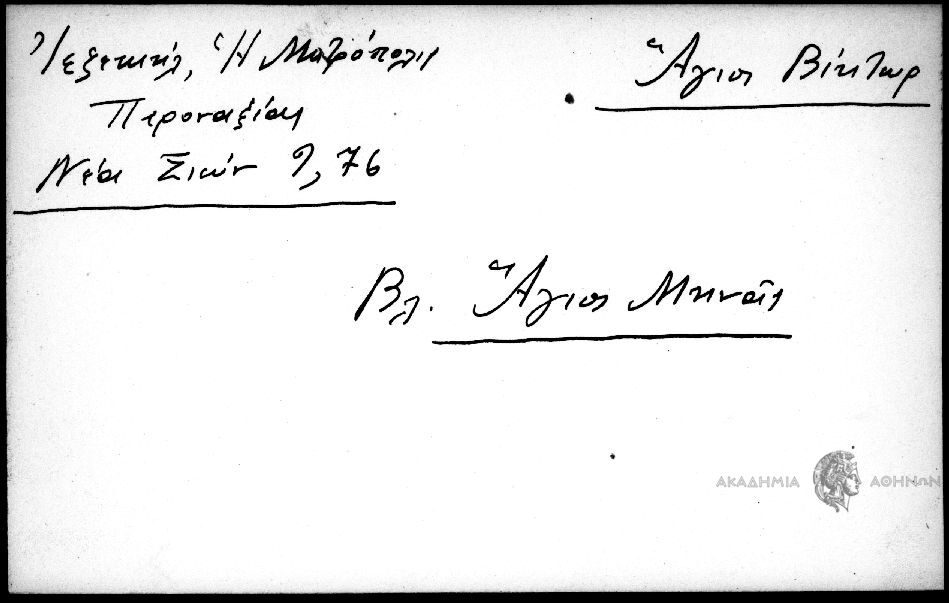 Ἰεζεκιήλ, Ἡ Μητρόπολις
Παροναξίας
Νέα Σιών 9, 76
Ἅγιος Βίκτωρ
Βλ. Ἅγιος Μηνᾶς
ΑΚΑΔΗΜΙΑ ΑΘΗΝΩΝ